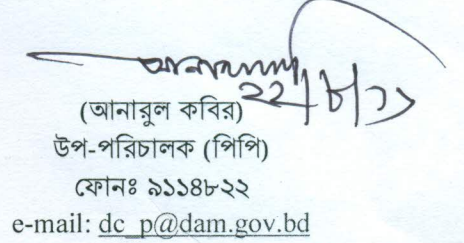 ২২/৮/১১
(আনারুল কবির)
উপ-পরিচালক (পিপি)
ফোনঃ ৯১১৪৮২২
e-mail: dc_p@dam.gov.bd